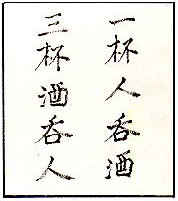 一杯人呑酒
三杯酒呑人